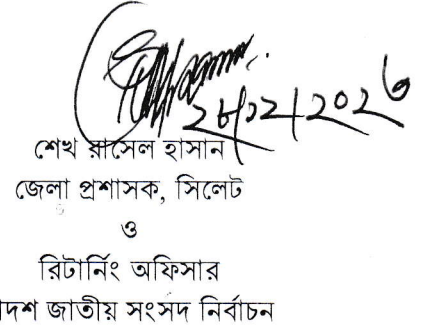 ২৮/১২/২০২৩
শেখ রাসেল হাসান
জেলা প্রশাসক, সিলেট
ও
রিটার্নিং অফিসার
াদশ জাতীয় সংসদ নির্বাচন